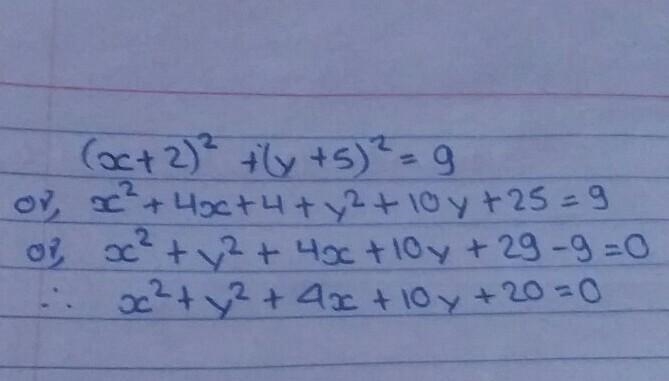 (x+2)² + (y+5)² = 9
or, x² + 4x + 4 + y² + 10y + 25 = 9
or, x² + y² + 4x + 10y + 29 - 9 = 0
∴ x² + y² + 4x + 10y + 20 = 0